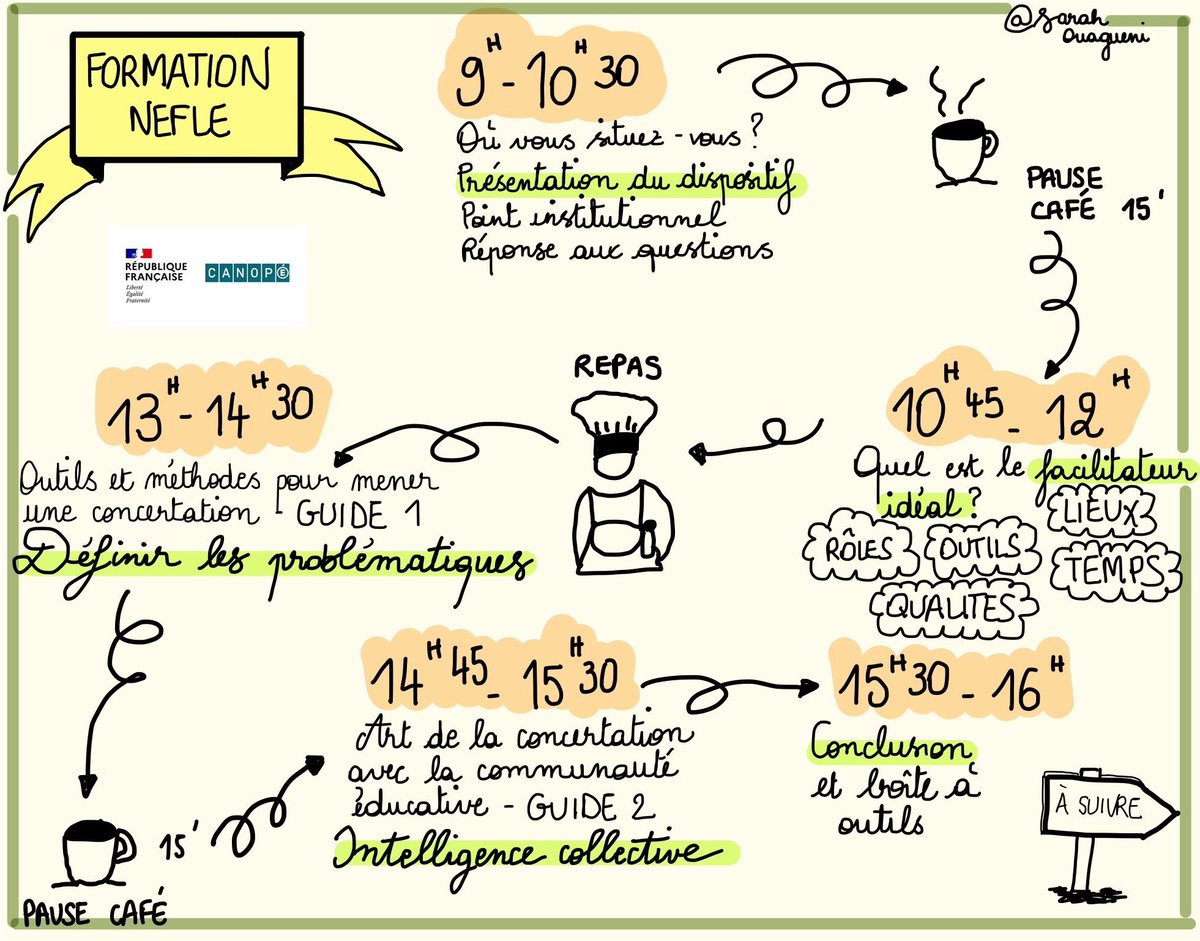 @Sarah
Ouagueni
FORMATION
NEFLE
RÉPUBLIQUE
FRANÇAISE
Liberté
Égalité
Fraternité
CANOPÉ
9H - 10H30
Où vous situez-vous ?
Présentation du dispositif
Point institutionnel
Réponse aux questions
PAUSE
CAFÉ 15'
10H45 - 12H
Quel est le facilitateur
idéal ?
LIEUX
RÔLES
OUTILS
TEMPS
QUALITES
REPAS
13H - 14H30
Outils et méthodes pour mener
une concertation - GUIDE 1
Définir les problématiques
15'
PAUSE CAFÉ
14H45 - 15H30
Art de la concertation
avec la communauté
éducative - GUIDE 2
Intelligence collective
15H30 - 16H
Conclusion
et boîte à
outils
À SUIVRE